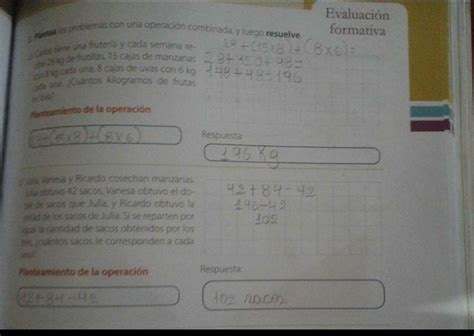 Evaluación
formativa
los problemas con una operación combinada, y luego resuelve.
Carlos tiene una frutería y cada semana re-
28 kg de frutillas, 15 cajas de manzanas
8 kg cada una, 8 cajas de uvas con 6 kg
cada una. ¿Cuántos kilogramos de frutas
recibe?
28+(15x8)+(8x6)=
148+48=196
Planteamiento de la operación
Respuesta:
+(15x8)+(8x6)
196 Kg
Julia, Vanesa y Ricardo cosechan manzanas.
Julia obtuvo 42 sacos, Vanesa obtuvo el do-
ble de sacos que Julia, y Ricardo obtuvo la
mitad de los sacos de Julia. Si se reparten por
igual la cantidad de sacos obtenidos por los
tres, ¿cuántos sacos le corresponden a cada
uno?
42+84-42
102
Planteamiento de la operación
Respuesta:
42+84-42
102 sacos